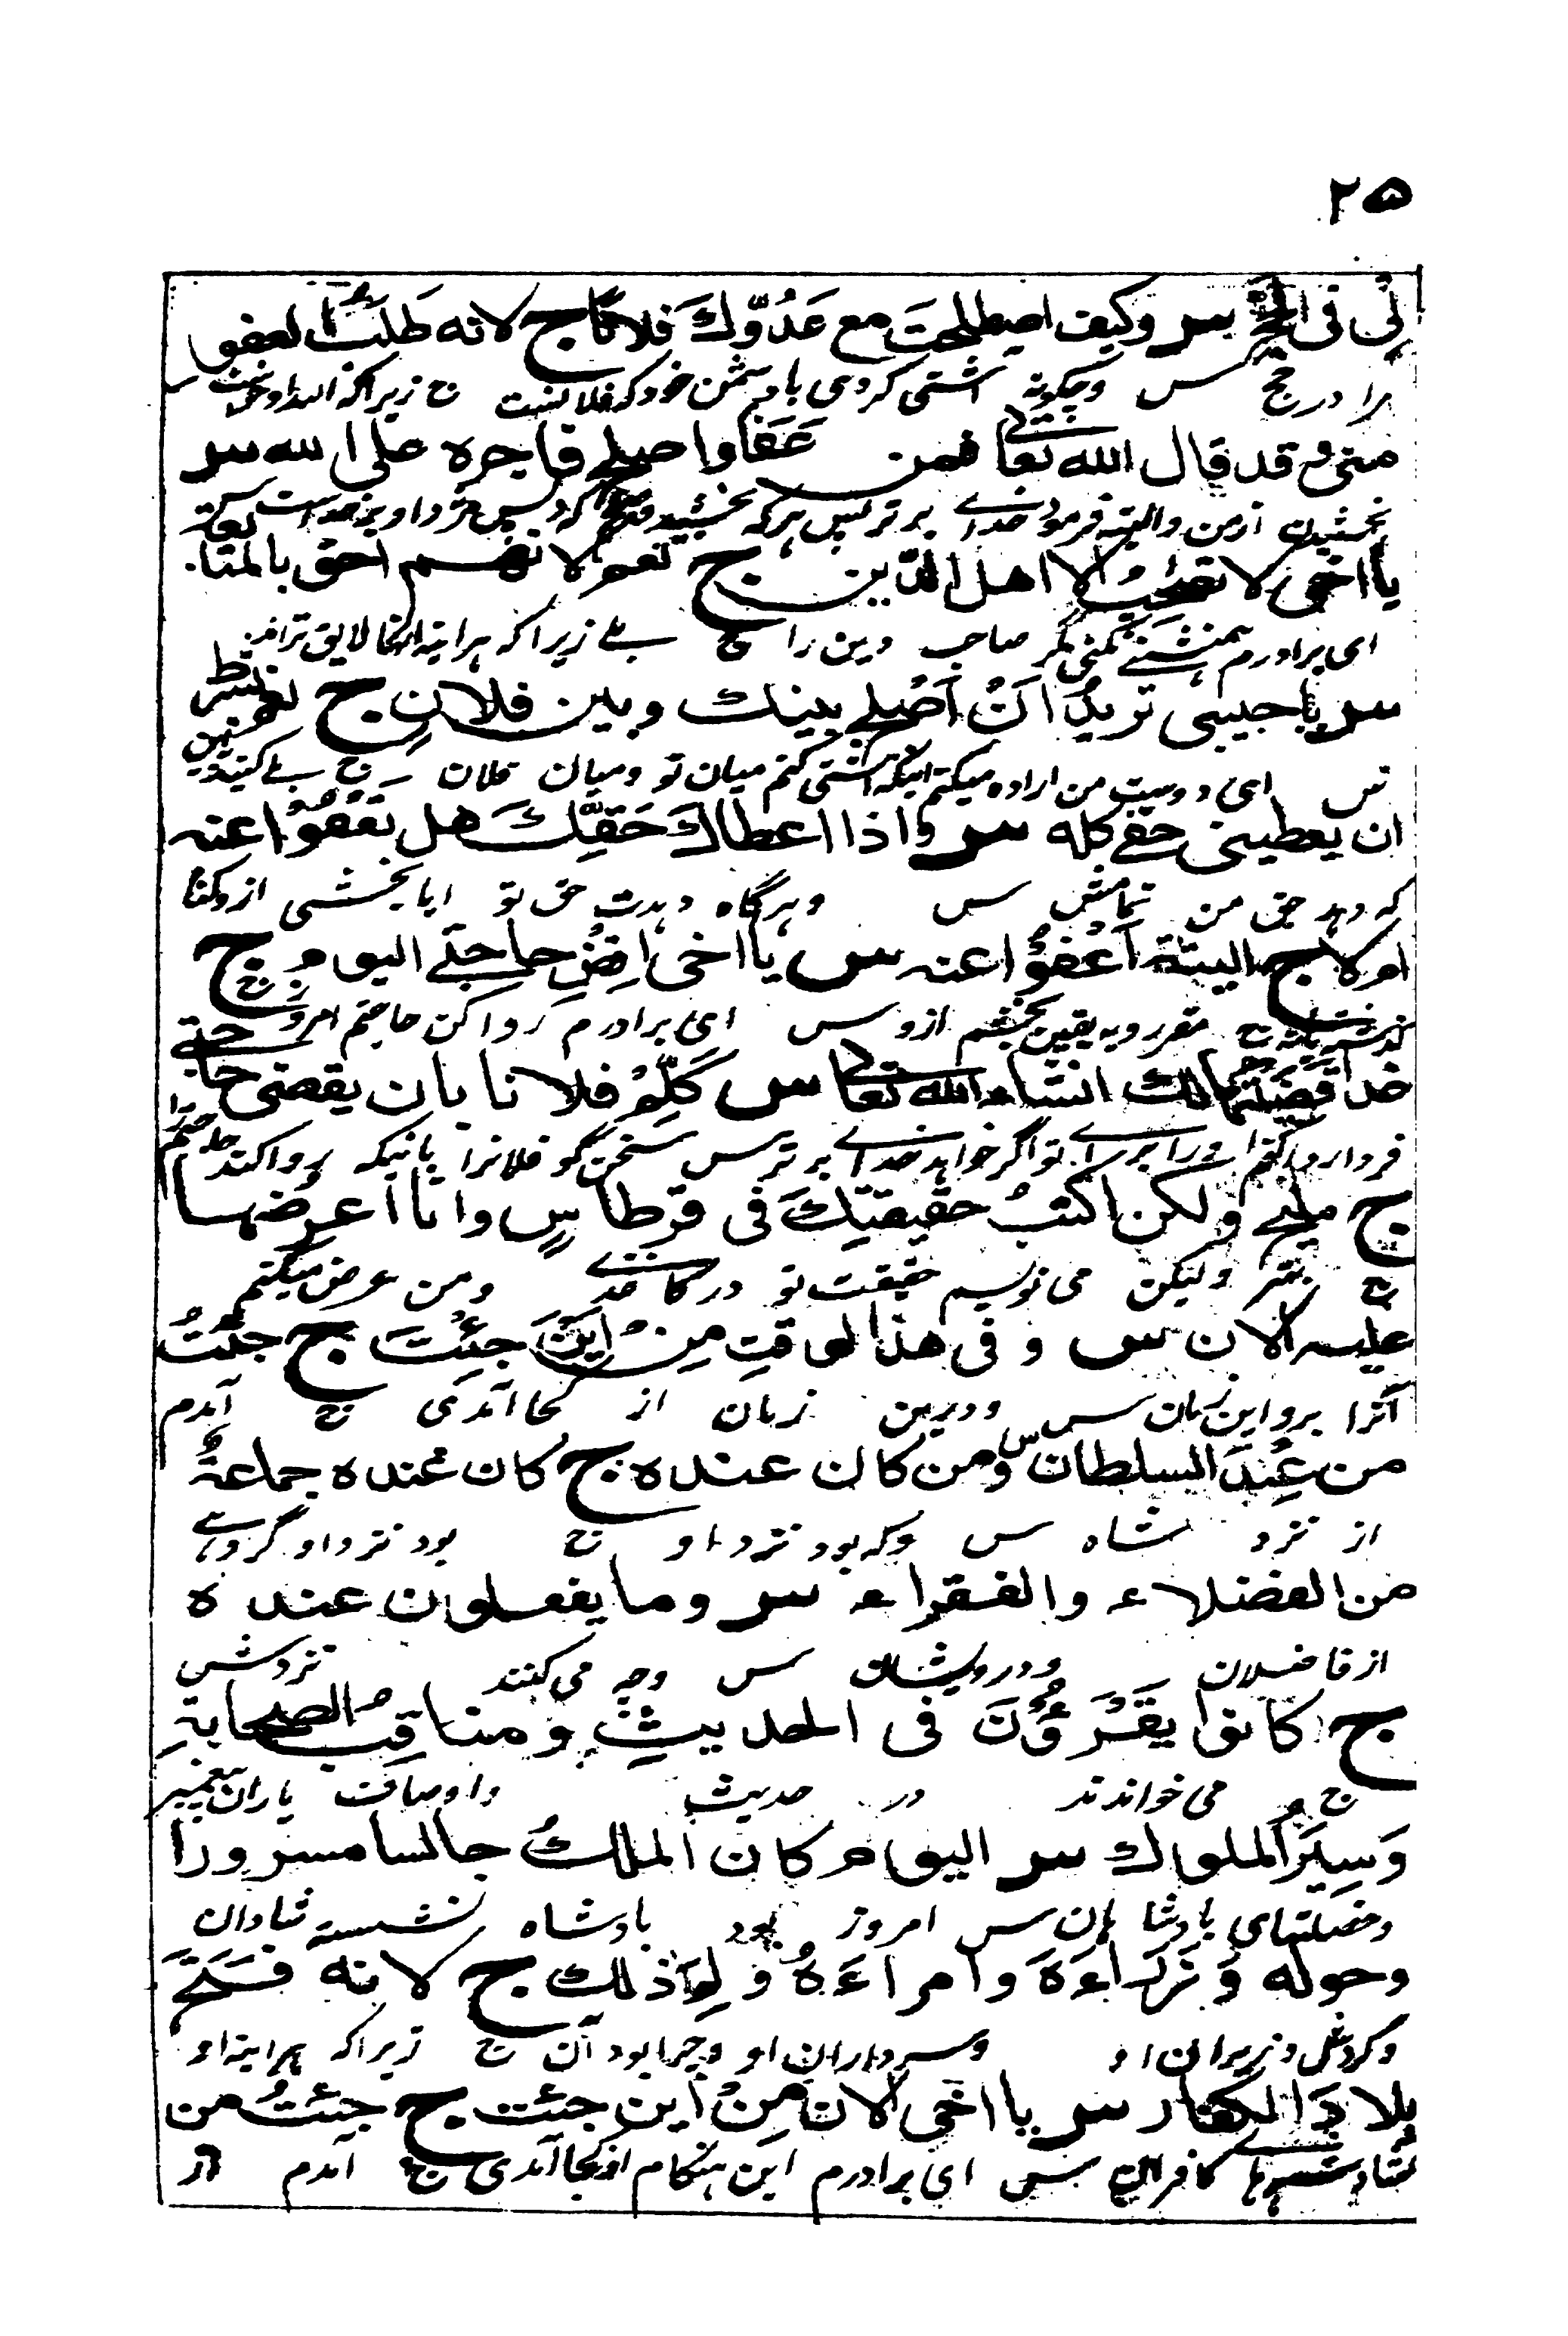 ٢٥
لي في الحج س وكيف اصطلحت مع عَدُوِّكَ فلانًا ج لانه طلبَ العفو
مرا در حج س وچگونه آشتی کردی با دشمن خود که فلانست ج زیرا که
منی وقد قال الله تعالی فمن عَفَا واصلح فاجره علی الله س
بخشیدن ازمن والبته فرمود خدای برتر پس هرکه بخشید
یا اخی لا تصحب الا اهل الدّین ج نعم لانهم احق بالمتا
ای برادرم همنشینی مکنی مگر صاحب دین را ج بلے زیرا که لایق تراند
س یا حبیبی تریدُ اَنْ اَصْلح بینك وبین فلانٍ ج نعم بشرط
س ای دوست من اراده میکنم اینکه آشتی کنم میان تو ومیان فلان ج بلے
ان یعطینی حقی کله س واذا اعطاك حَقَّكَ هل تَعْفُوْا عنه
که دهد حق من تمامش س وهرگاه دهدت حق تو ایا بخشی از
ام لا ج البتة اَعْفُوْا عنه س یا اخی اِقْضِ حاجتی الیوم ج
مقرر وبه یقین بخشم ازو س ای برادرم روا کن حاجتم امروز ج
غدا قَضَیْتُهَا لك انشاء الله تعالی س كَلِّمْ فلانا بان یقضی حاجتی
فردا روا کنم اورا برای تو اگر خواهد خدای برتر س سخن گو فلانرا بانیکه روا کند حاجتم را
ج ملیح ولکن اکتبُ حقیقتِكَ فی قرطاسٍ وانا اعرضها
ج بهتر ولیکن می نویسم حقیقت تو در کاغذے ومن عرض میکنم
علیه الان س وفی هذا الوقتِ مِنْ اینَ جِئْتَ ج جئتُ
آنرا برو این زمان س ودرین زمان از کجا آمدی ج آمدم
من عِنْدَ السلطان س ومن کان عنده ج کان عنده جماعةٌ
از نزد شاه س وکه بود نزد او ج بود نزد او گروهے
من الفضلاء والفقراء س وما یفعلون عنده
از فاضلان ودرویشان س وچه می کنند نزدش
ج کانوا یَقْرَؤُنَ فی الحدیثِ ومناقبِ الصحابةِ
ج می خواندند در حدیث واوصاف یاران پیغمبر
وَسِیَرِ الملوك س الیوم کان الملكُ جالسا مسرورا
وخصلتهای بادشاهان س امروز بود بادشاه نشسته شادان
وحوله وُزَرَاءَهُ وامراءَهُ وَلِمَ ذلك ج لانه فَتَحَ
وگردش وزیران او وسرداران او وچرا بود آن ج زیرا که هراینه او
بلادَ الکفار س یا اخی الان مِنْ این جئت ج جئتُ من
کشاد شهرهاے کافران س ای برادرم این هنگام از کجا آمدی ج آمدم از